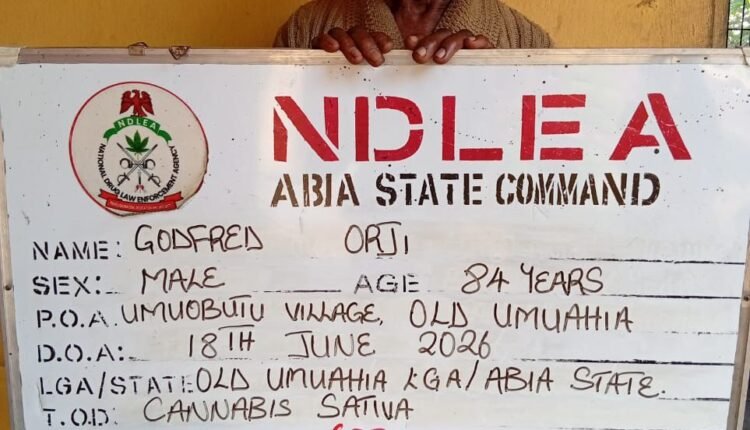 NDLEA
NATIONAL DRUG LAW ENFORCEMENT AGENCY
NDLEA
ABIA STATE COMMAND
NAME: GODFRED ORJI
SEX: MALE AGE 84 YEARS
P.O.A. UMUOBUTU VILLAGE, OLD UMUAHIA
D.O.A: 18TH JUNE 2026
LGA/STATE: OLD UMUAHIA LGA/ABIA STATE.
T.O.D: CANNABIS SATIVA